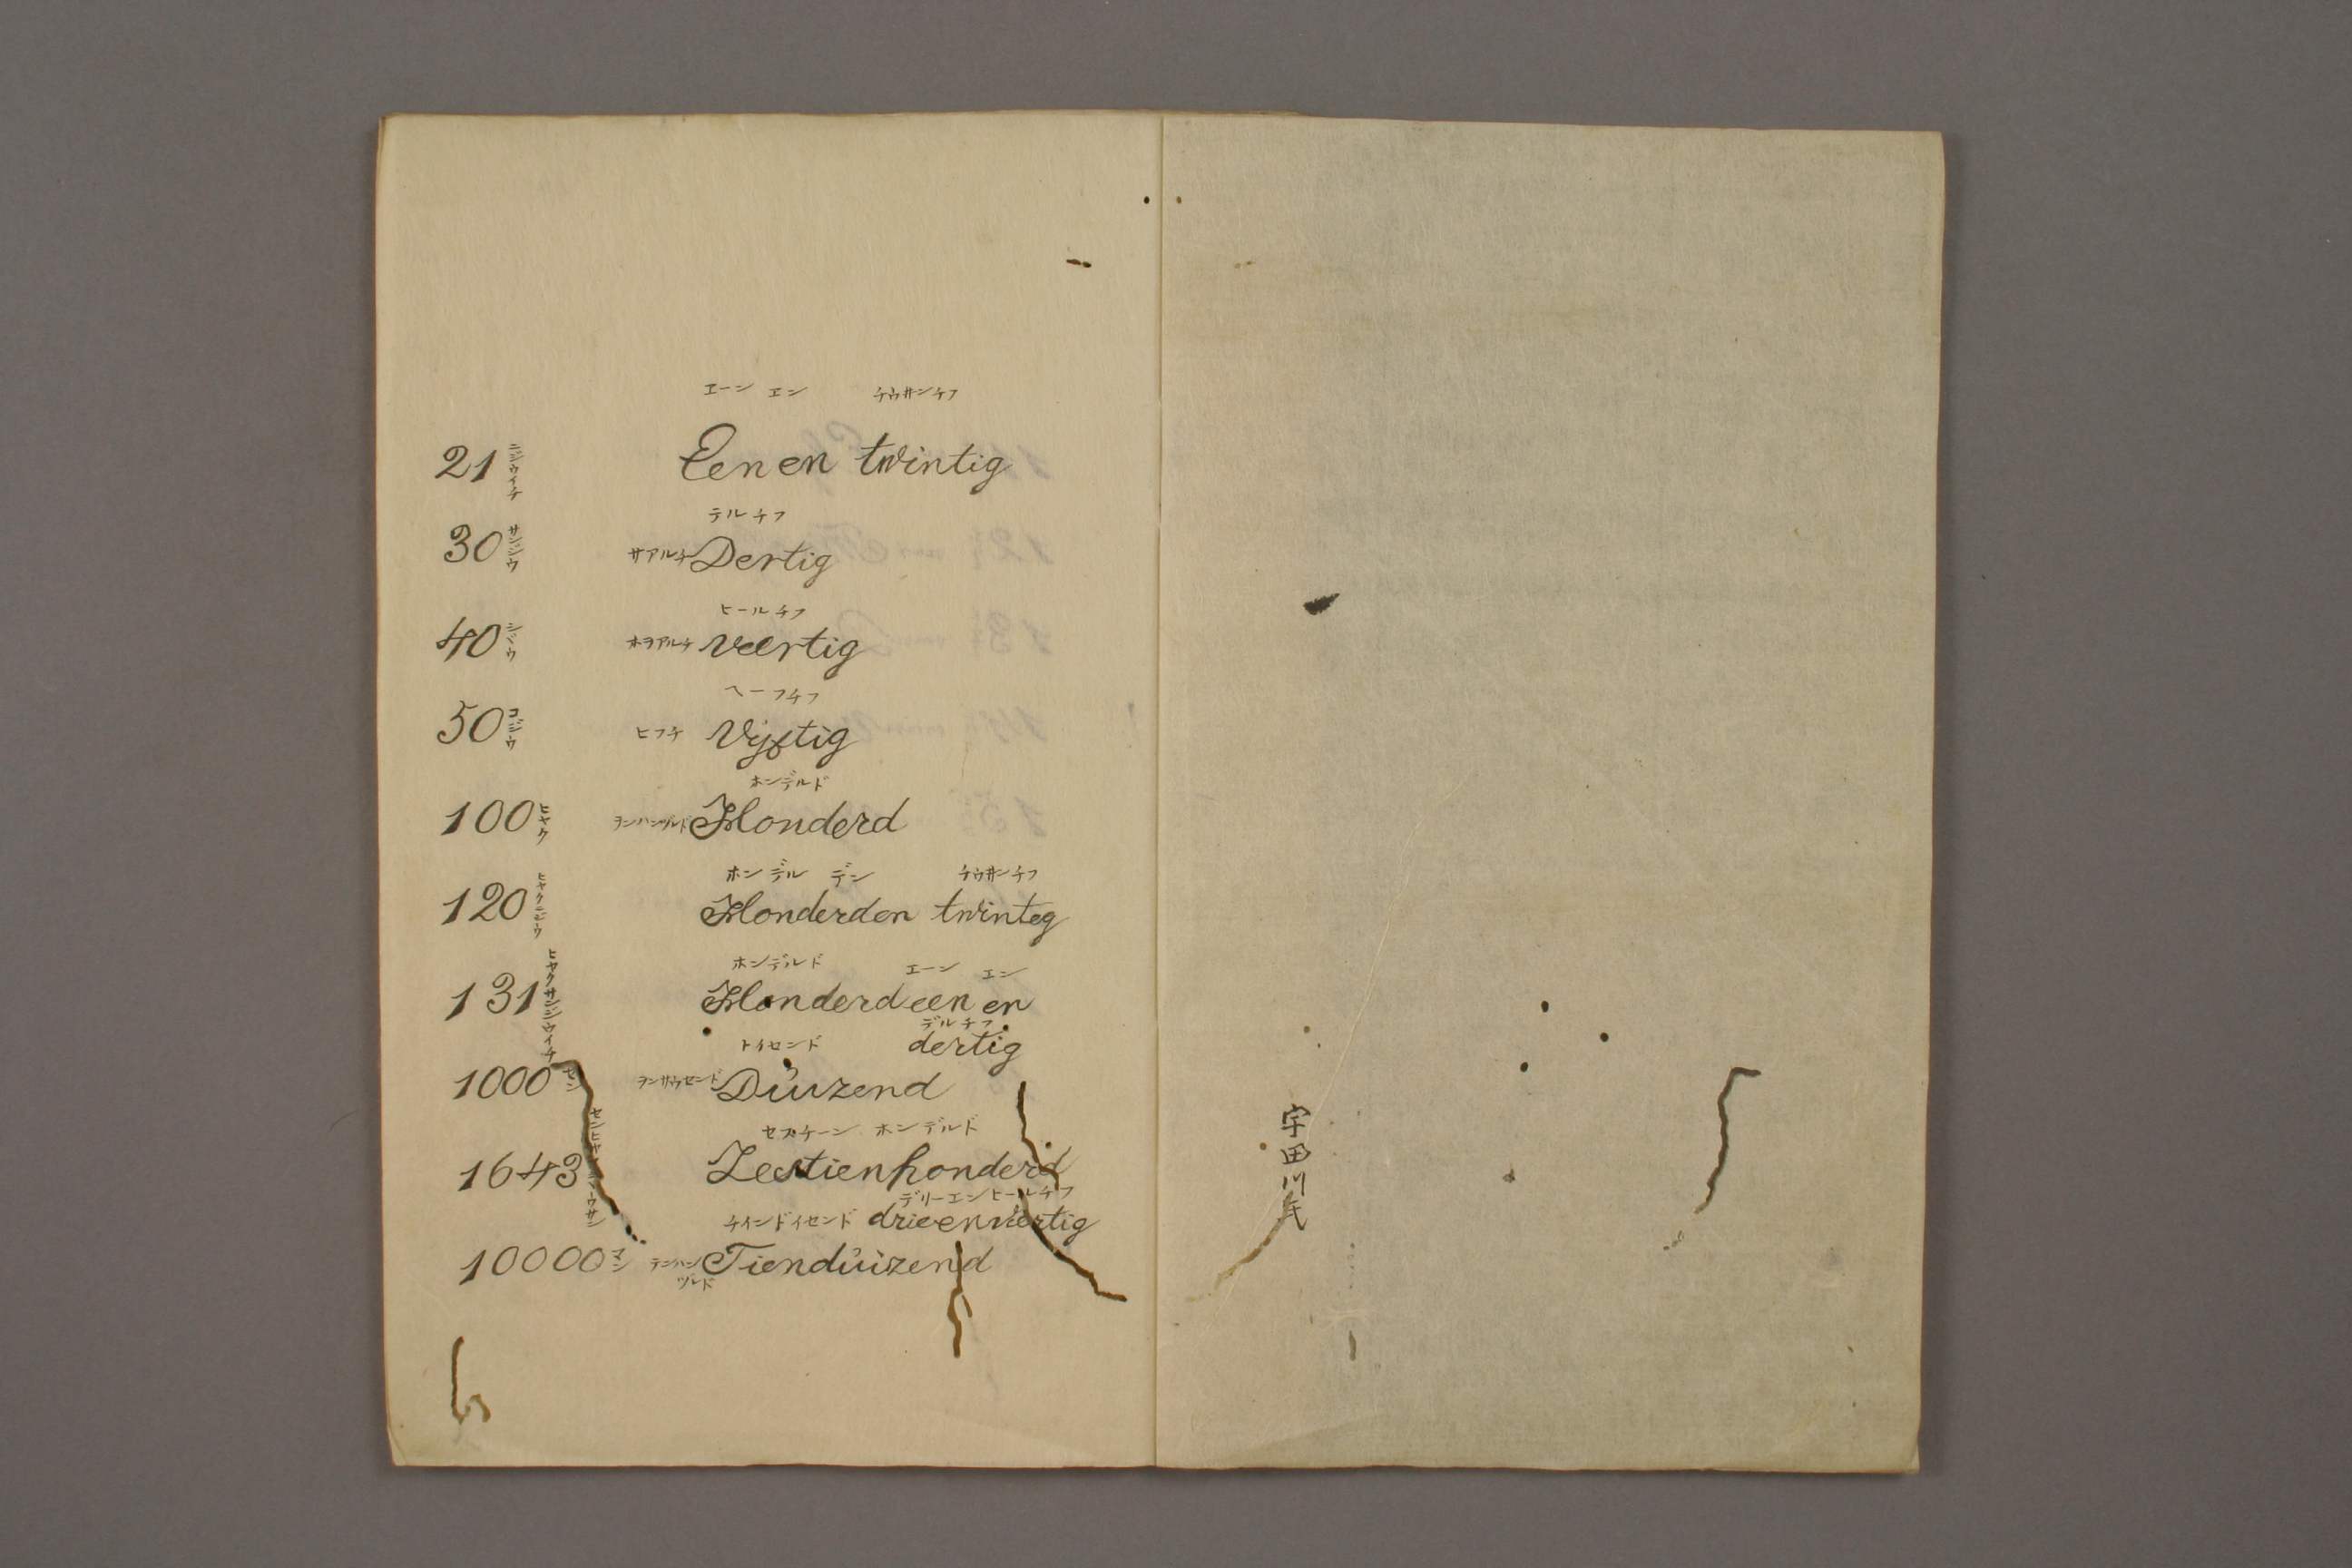 エーン エン チウ井ンチフ
21 ニジウイチ Een en twintig
テルチフ
30 サンジウ サアルチ Dertig
ヒールチフ
40 シジウ ホヲアルチ Veertig
ヘーフチフ
50 コジウ ヒフチ Vijftig
ホンデルド
100 ヒヤク ヲンハンヅルド Honderd
ホンデル デン チウ井ンチフ
120 ヒヤクニジウ Honderden twinteg
ホンデルド エーン エン
131 ヒヤクサンジウイチ Honderd een en
デルチフ
dertig
トイセンド
1000 セン ヲンサウセンド Duizend
セスチーン ホンデルド
1643 Zestienhonderd
デリーエンヒールチフ
drieenviertig
チインドイセンド
10000 マン テンハンヅルド Tienduizend
宇田川氏